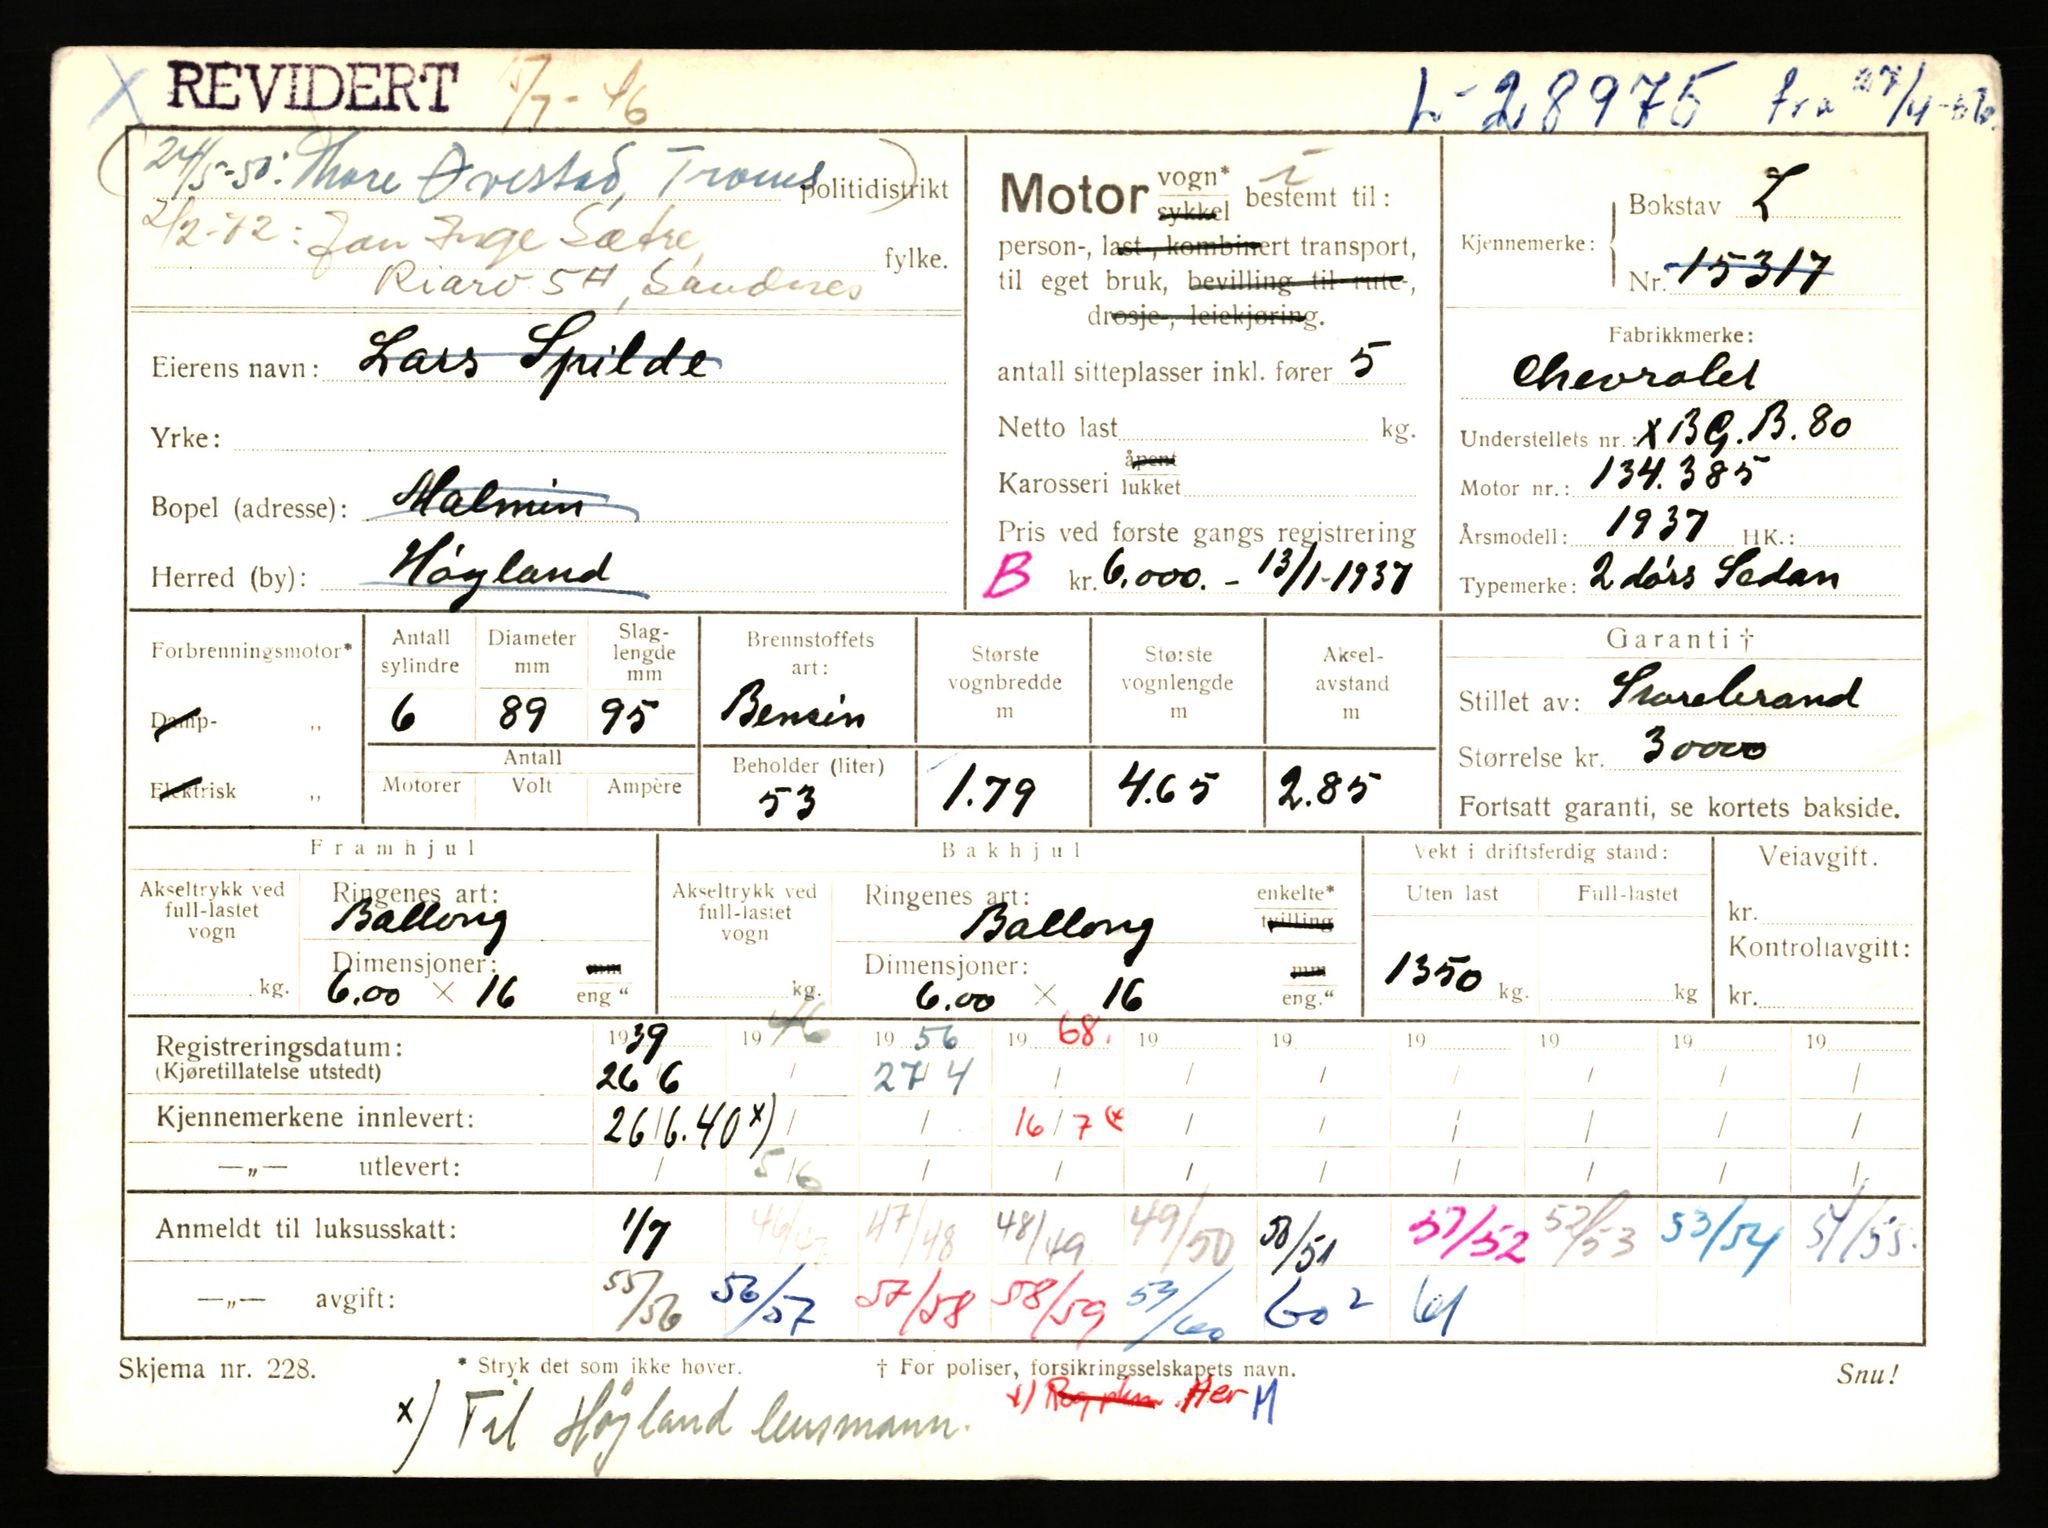 X REVIDERT 1/7-46 L-28975 fra 27/4-56
(24/5-50: Thore Ørestad, Troms) politidistrikt
2/2-72: Jan Inge Sætre, fylke.
54, Sandnes
Eierens navn: Lars Spilde
Yrke:
Bopel (adresse): Malmin
Herred (by): Høyland
Motor vogn* sykkel bestemt til:
person-, last-, kombinert transport,
til eget bruk, bevilling til rute-,
drosje-, leiekjøring.
antall sitteplasser inkl. fører 5
Netto last kg.
Karosseri åpent lukket
Pris ved første gangs registrering
B kr. 6.000.- 13/1-1937
Kjennemerke: Bokstav L
Nr. 15317
Fabrikkmerke:
Chevrolet
Understellets nr.: X BG.B.80
Motor nr.: 134.385
Årsmodell: 1937 HK.:
Typemerke: 2 dørs Sedan
Forbrenningsmotor*
Damp- „
Elektrisk „
Antall sylindre Diameter mm Slaglengde mm
6 89 95
Antall
Motorer Volt Ampère
Brennstoffets art:
Bensin
Beholder (liter)
53
Største vognbredde m
1.79
Største vognlengde m
4.65
Akselavstand m
2.85
Garanti †
Stillet av: Storebrand
Størrelse kr. 30000
Fortsatt garanti, se kortets bakside.
Framhjul
Akseltrykk ved full-lastet vogn kg.
Ringenes art:
Ballong
Dimensjoner: mm
6.00 × 16 eng "
Bakhjul
Akseltrykk ved full-lastet vogn kg.
Ringenes art: enkelte* tvilling
Ballong
Dimensjoner: mm
6.00 × 16 eng."
Vekt i driftsferdig stand:
Uten last Full-lastet
1350 kg. kg
Veiavgift.
kr.
Kontrollavgift:
kr.
Registreringsdatum: 1939 1946 1956 1968. 19 19 19 19 19 19
(Kjøretillatelse utstedt) 26/6 / 27/4 / / / / / / /
Kjennemerkene innlevert: 26/6.40 x) / / 16/7 (x / / / / / /
—„— utlevert: / 5/6 / / / / / / / /
Anmeldt til luksusskatt: 1/7 46/47 47/48 48/49 49/50 50/51 51/52 52/53 53/54 54/55.
—„— avgift: 55/56 56/57 57/58 58/59 59/60 60² 61
Skjema nr. 228. * Stryk det som ikke høver. † For poliser, forsikringsselskapets navn. Snu!
x) Til Høyland lensmann. x) Her M